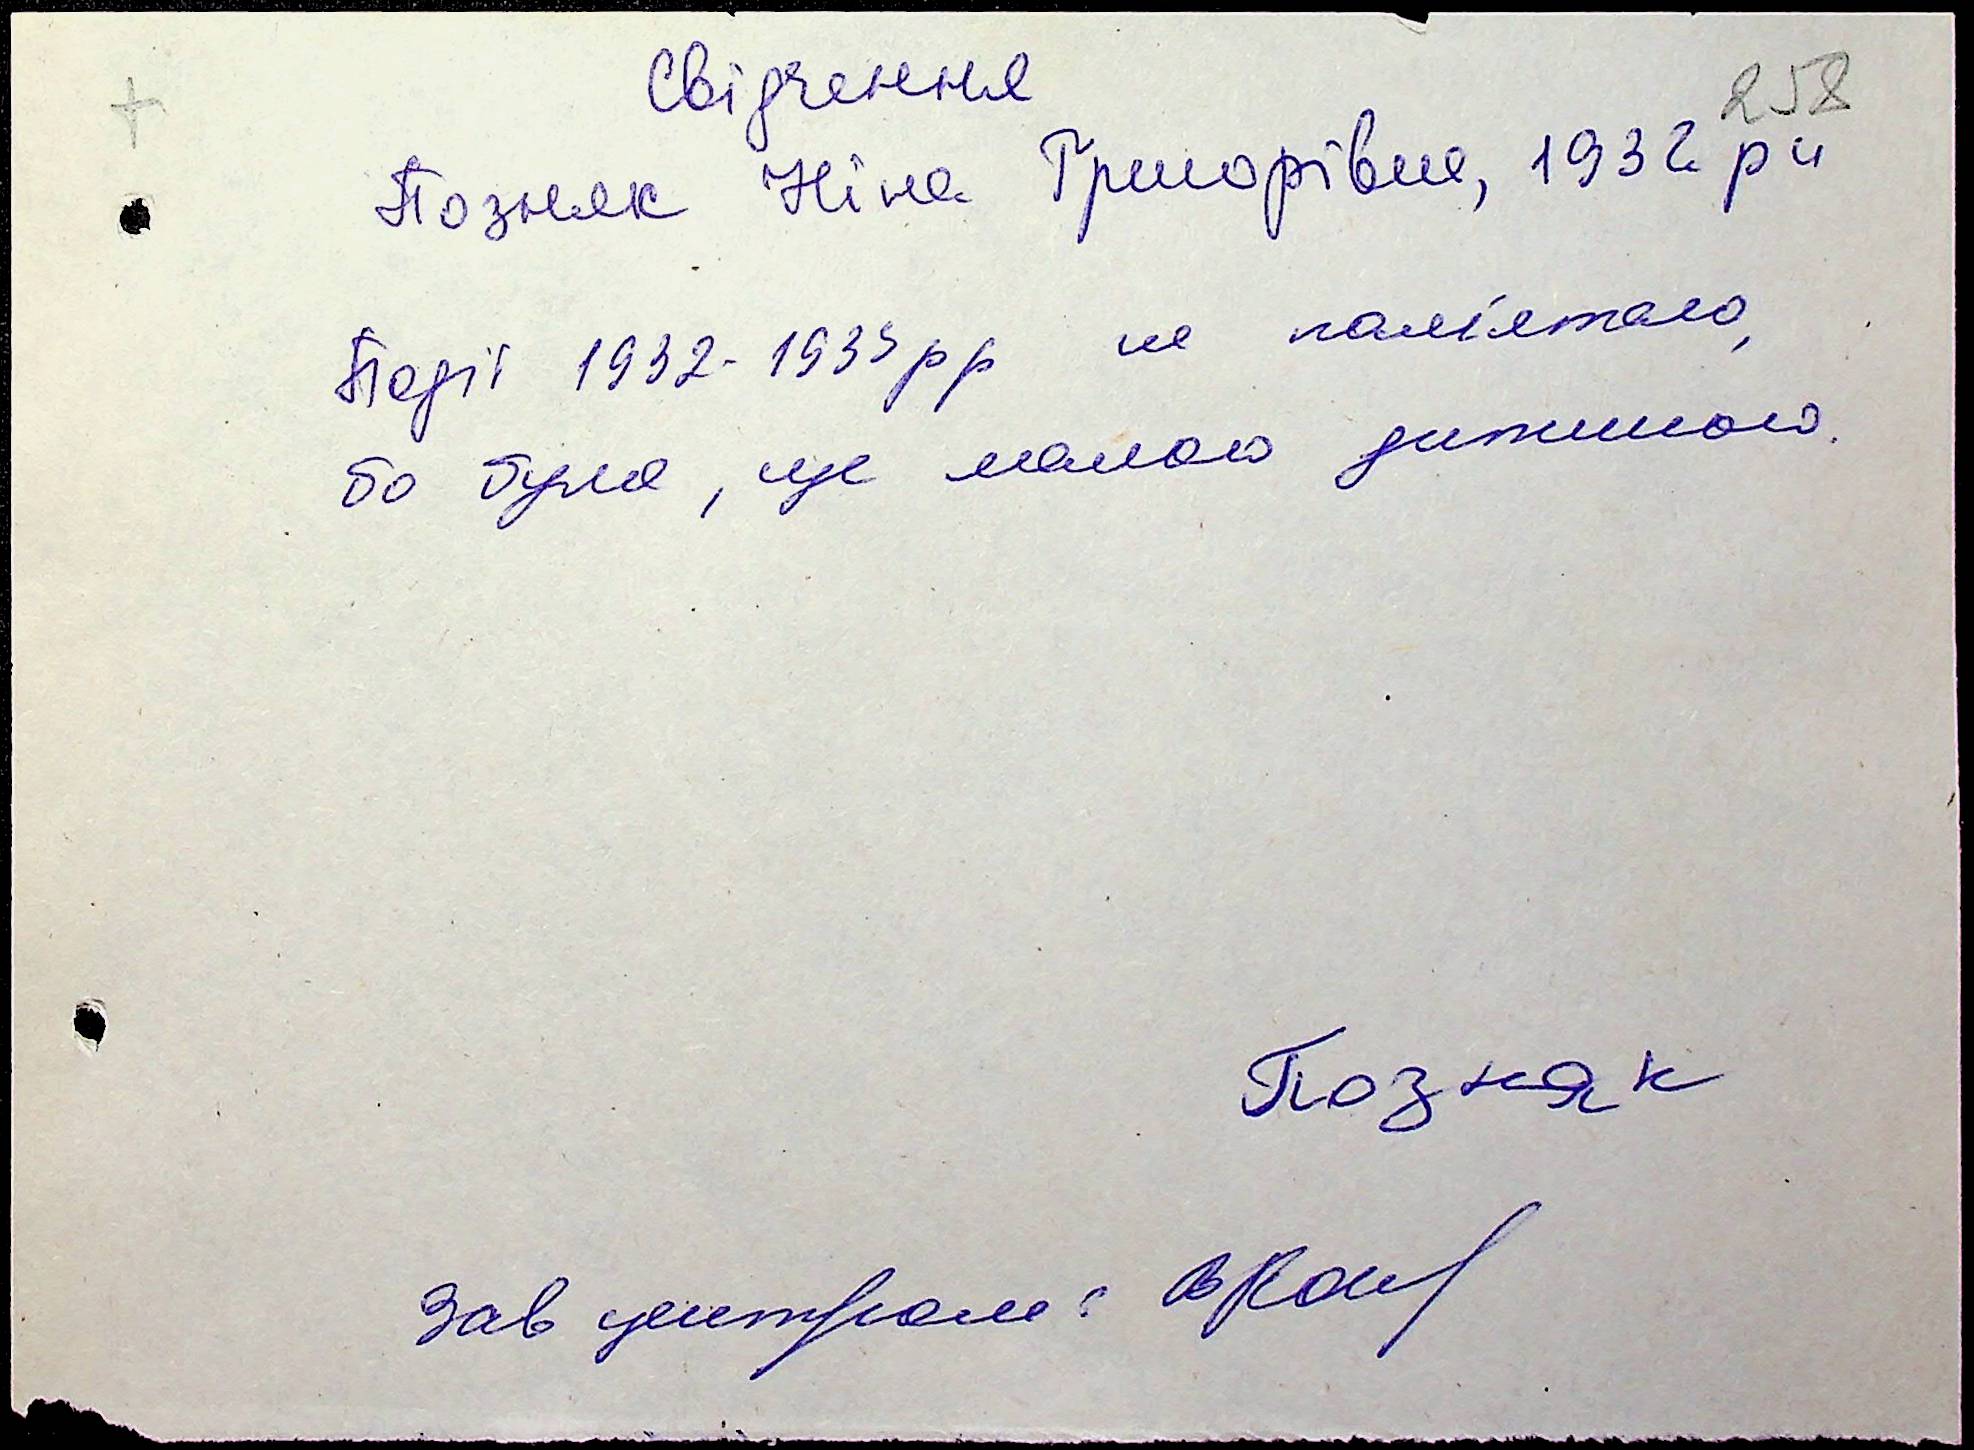 258
Свідчення
Позняк Ніна Григорівна, 1932 рн
Події 1932-1933рр не пам'ятаю,
бо була, ще малою дитиною.
Позняк
Зав центром: